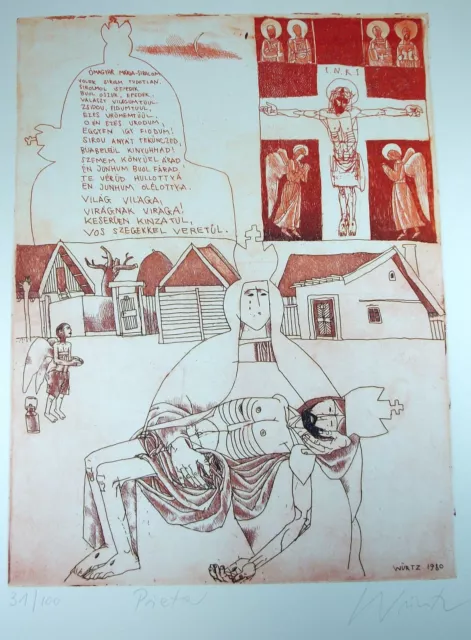 ÓMAGYAR MÁRIA-SIRALOM
VOLÉK SIRALM TUDOTLAN.
SIROLMOL SEPEDEK.
BUOL OSZUK, EPEDEK.
VÁLASZT VILÁGUMTUUL.
ZSIDOU, FIODUMTUUL,
ÉZES ÜRÖMEMTÜÜL.
O ÉN ÉZES URODUM,
EGGYEN IGY FIODUM!
SIROU ANYÁT TEKÜNCSED,
BUABELEUL KINYUHHAD!
SZEMEM KÖNYÜEL ÁRAD
ÉN JONHUM BUOL FÁRAD.
TE VÉRÜD HULLOTTYA
ÉN JUNHUM OLÉLOTTYA.
VILÁG VILÁGA,
VIRÁGNAK VIRÁGA!
KESERÜEN KINZATUL,
VOS SZEGEKKEL VERETÜL.
I.N.R.I
WÜRTZ 1980
31/100
Pieta
Würtz